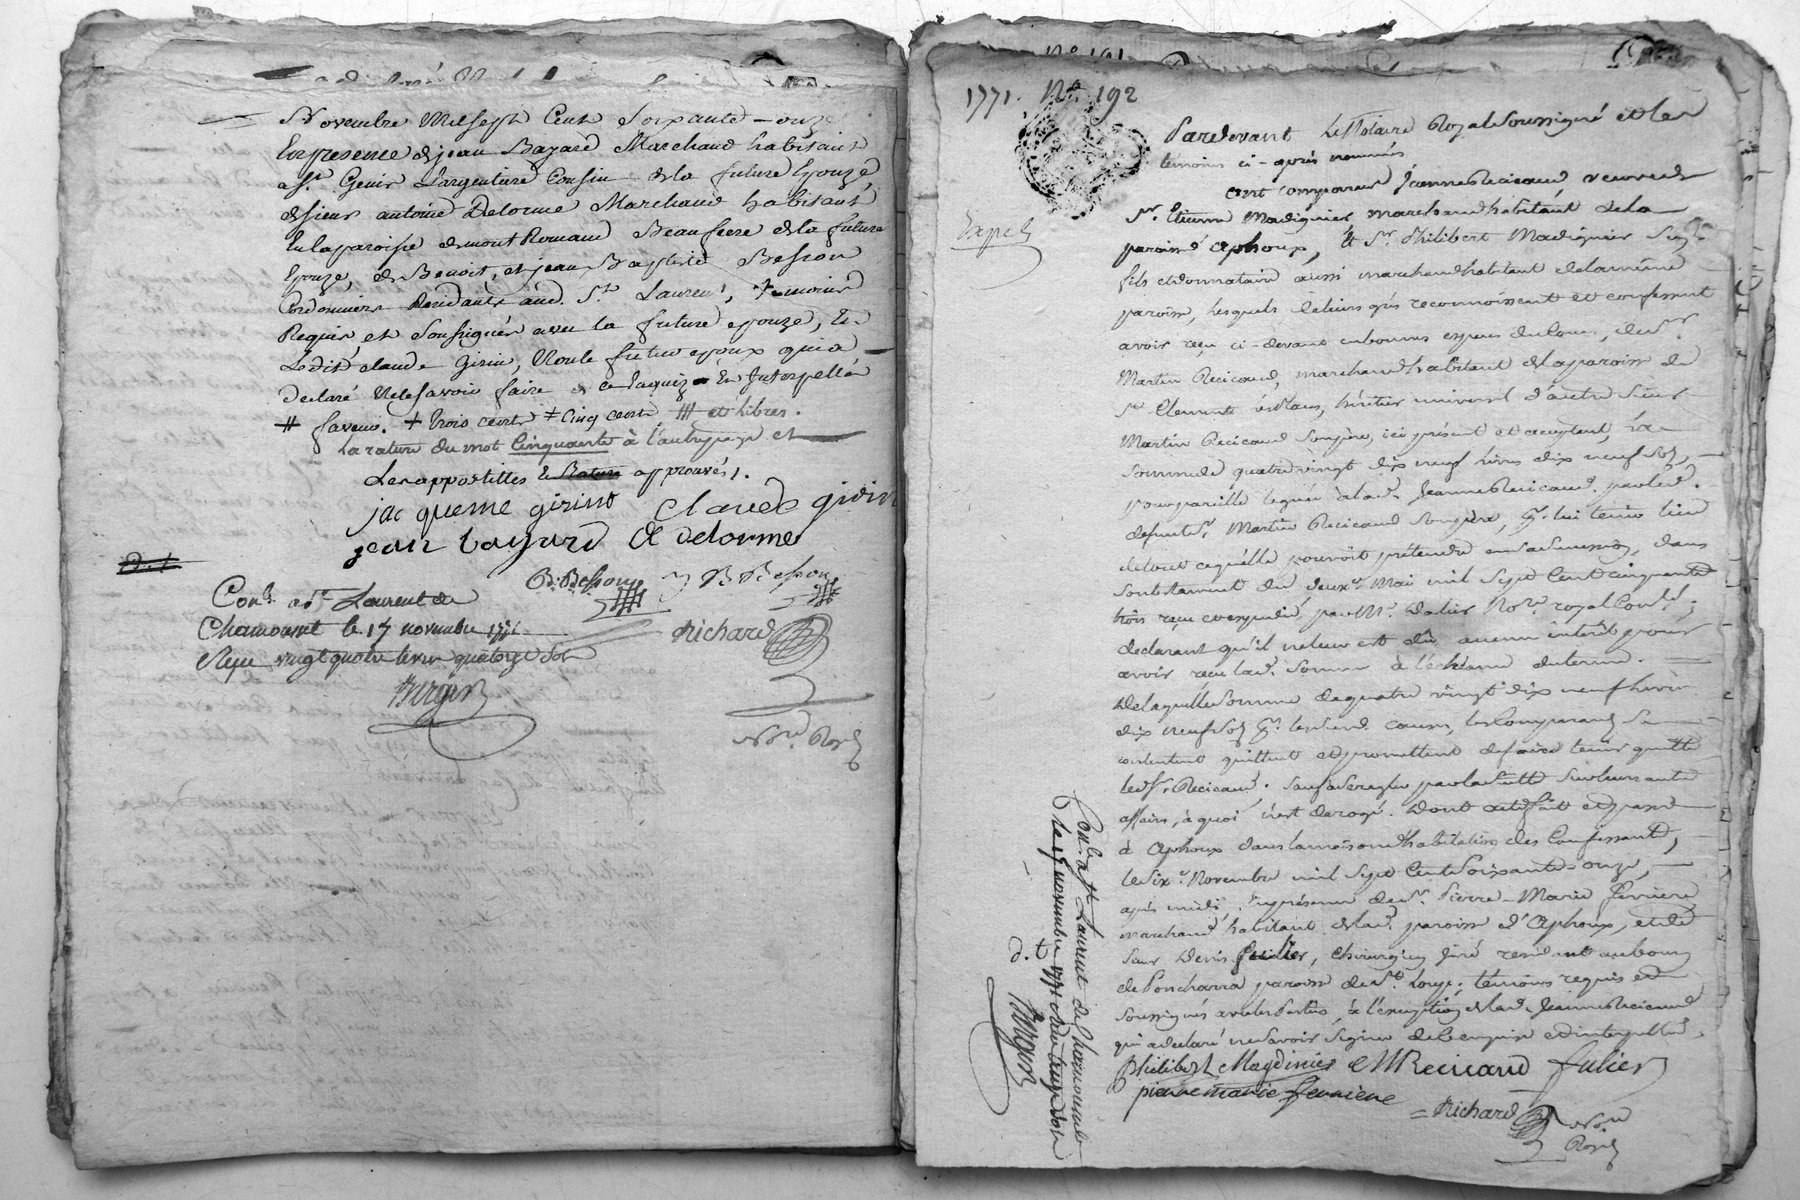 Novembre Mil sept Cent Soixante - onze
En presence de jean Bayard Marchand habitant
a St. Genis L'argentiere Cousin de la future Epouze,
de sieur antoine Delorme Marchand habitant
En la paroisse de mont Romand Beaufrere de la future
Epouze, de Benoit, et jean Baptiste Besson
Cordonniers Residants aud. St. Laurent, temoins
Requis et Soussignés avec la future epouze, Et
Ledit claude Girin, Non le futur epoux qui a
Declaré Ne le savoir faire de ce Enquis Et Interpellé
# faveur. + trois cents ≠ Cinq cents # et libres.
la rature du mot Cinquante à l'autre page et
Les appostilles Et Rature approuvés.
jacqueme girin claude girin
jean bayard A delorme
B. Besson J B Besson
Conlé. a St. Laurent de
Chamousset le 17 novembre 1771
Reçu vingt quatre livres quatorze sols
Richard
Berger
Nore. Royal
1771. No. 192
Pardevant Le Notaire Royal Soussigné et les
temoins ci-après nommés
ont comparu Jeanne Recicaud veuve de
Sr. Etienne Madignier marchand habitant de la
paroisse d'Aphoux, & Sr. Philibert Madignier Son
fils et donnatair aussi marchand habitant de la même
paroisse, lesquels de leurs grés reconnoissent et confessent
avoir reçu ci-devant en bonnes especes du Cours, de Sr.
Martin Recicaud, marchand habitant de la paroisse de
St. Clement les Places, héritier universel d'autre Sieur
Martin Recicaud Son père, ici présent et acceptant, La
Somme de quatre vingt dix neuf livres dix neuf Sols,
pour pareille leguée à lad. Jeanne Recicaud par led.
defunt Sr. Martin Recicaud Son père, pr. lui tenir lieu
de tout ce qu'elle pouvoit prétendre en sa Succession, dans
Son testament du deuxe. Mai mil Sept Cent cinquante
trois reçu et expedié par Me. Dalier Nore. royal Conlé. ;
declarant qu'il ne leur est dû aucun intérêt pour
avoir reçu lad. Somme à l'échéance du terme.
De laquelle Somme de quatre vingt dix neuf livres
dix neuf Sols les Comparants Se
contentent quittent et promettent de faire tenir quitte
led. Sr. Recicaud. Sauf à Se regler par la Suitte Sur leurs autres
affaires, à quoi n'est derogé. Dont acte fait et passé
à Aphoux dans la maison d'habitation des Confessants,
le Sixe. Novembre mil Sept Cent Soixante-onze,
après midi. En présence de Sr. Pierre-Marie ferriere
marchand habitant de lad. paroisse d'Aphoux, et de
Sieur Denis fulier, chirurgien Juré residant au bourg
de Poncharra paroisse de St. Loup, temoins requis et
Soussignés avec les Parties, à l'exception de lad. Jeanne Recicaud
qui a declaré ne Savoir Signer de ce enquise et interpellée.
Philibert Magdinier M Recicaud fulier
pierre marie ferriere
Richard Nore.
Royal
Conlé. a St. Laurent de Chamousset
le 17 novembre 1771
d. t
Berger